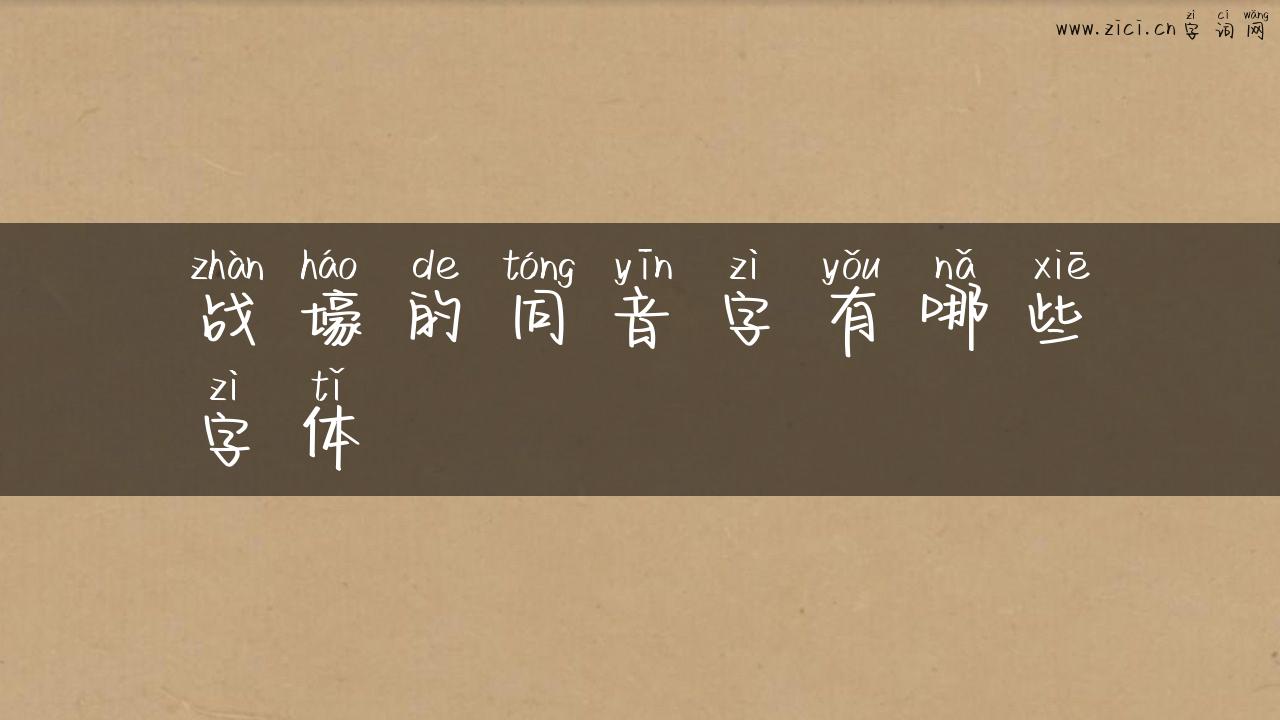 zì cí wǎng
www.zici.cn 字 词 网
zhàn háo de tóng yīn zì yǒu nǎ xiē
战 壕 的 同 音 字 有 哪 些
zì tǐ
字 体